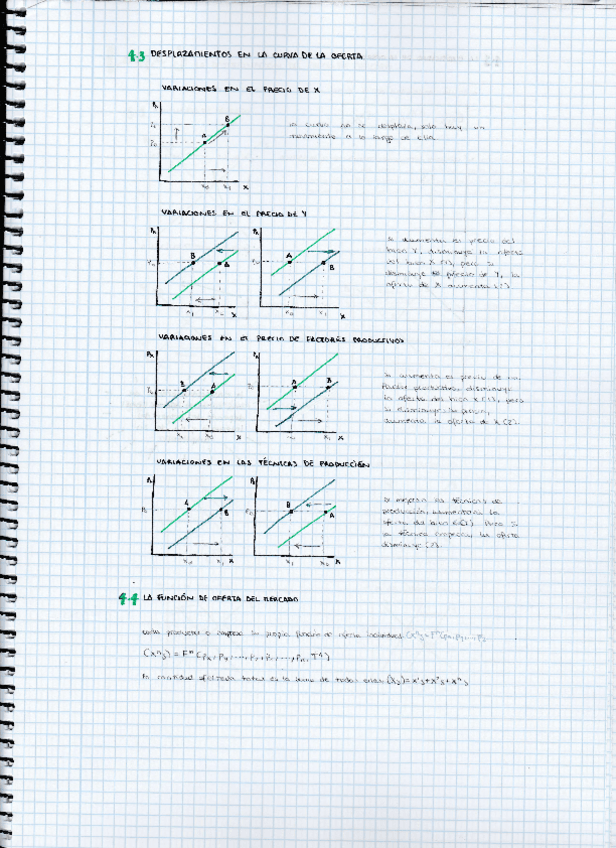 4.3 DESPLAZAMIENTOS EN LA CURVA DE LA OFERTA
VARIACIONES EN EL PRECIO DE X
la curva no se desplaza, solo hay un
movimiento a lo largo de ella.
VARIACIONES EN EL PRECIO DE Y
Si aumenta el precio del
bien Y, disminuye la oferta
del bien X (1), pero si
disminuye el precio de Y, la
oferta de X aumenta (2)
VARIACIONES EN EL PRECIO DE FACTORES PRODUCTIVOS
Si aumenta el precio de un
factor productivo, disminuye
la oferta del bien X (1), pero
si disminuye el precio,
aumenta la oferta de X (2).
VARIACIONES EN LAS TÉCNICAS DE PRODUCCIÓN
Si mejoran las técnicas de
producción, aumentará la
oferta del bien X (1). Pero si
la técnica empeora, la oferta
disminuye (2).
4.4 LA FUNCIÓN DE OFERTA DEL MERCADO
productor o empresa su propia función de oferta individual
la cantidad ofertada total es la suma de todas ellas